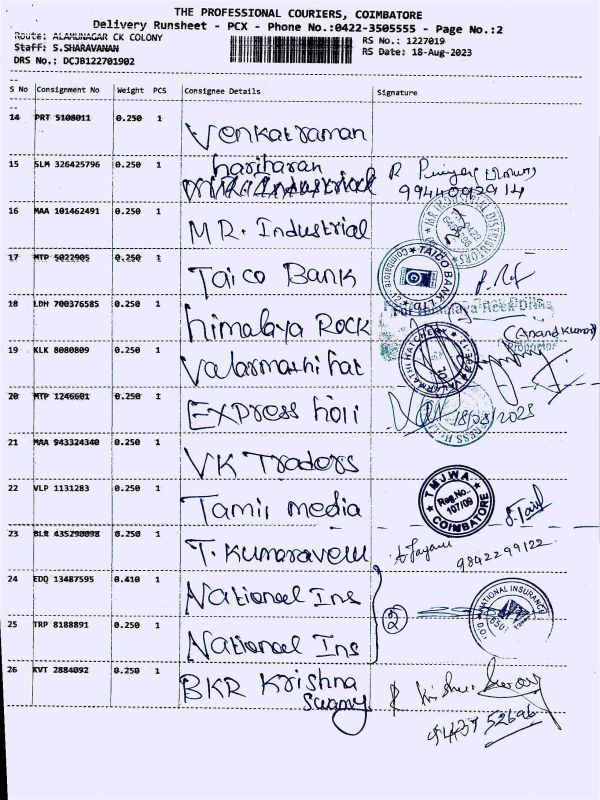 THE PROFESSIONAL COURIERS, COIMBATORE
Delivery Runsheet - PCX - Phone No.:0422-3505555 - Page No.:2
Route: ALAMUNAGAR CK COLONY
RS No.: 1227019
Staff: S.SHARAVANAN
RS Date: 18-Aug-2023
DRS No.: DCJB122701902
S No Consignment No Weight PCS Consignee Details Signature
14 PRT 5108011 0.250 1 Venkatraman
15 SLM 326425796 0.250 1 hariharan
9944092914
16 MAA 101462491 0.250 1 MR. Industrial
17 MTP 5022905 0.250 1 Taico Bank
TAICO BANK LTD
18 LDH 700376585 0.250 1 himalaya Rock
(Anand Kumar)
Proprietor
19 KLK 8080809 0.250 1 Valarmathi hat
20 MTP 1246601 0.250 1 Express holi
18/08/2023
21 MAA 943324340 0.250 1 VK Traders
22 VLP 1131283 0.250 1 Tamil media
TMJWA
Reg.No.
107/09
COIMBATORE
23 BLR 435290098 0.250 1 T. Kumaravelu
9842299122
24 EDQ 13487595 0.410 1 National Ins
2
NATIONAL INSURANCE
25 TRP 8188891 0.250 1 National Ins
26 KVT 2884092 0.250 1 BKR Krishna
Swamy